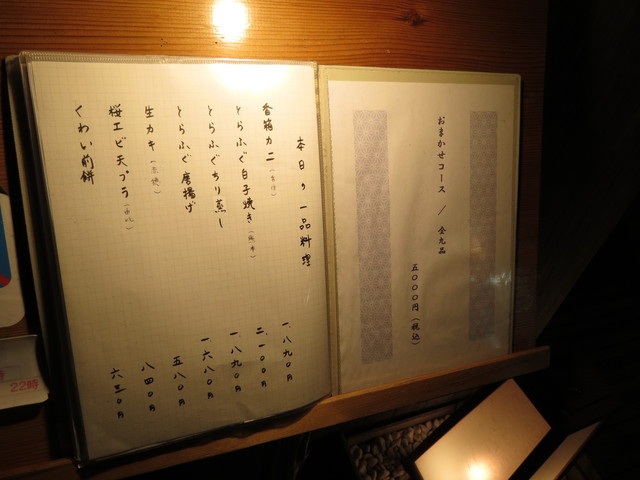 おまかせコース / 全九品
五000円(税込)
本日の一品料理
香箱カニ
とらふぐ白子焼き
とらふぐちり蒸し
とらふぐ唐揚げ
生カキ
桜エビ天プラ
くわい煎餅
一、八九0円
二、一00円
一、八九0円
一、六八0円
五八0円
八四0円
六三0円
22時